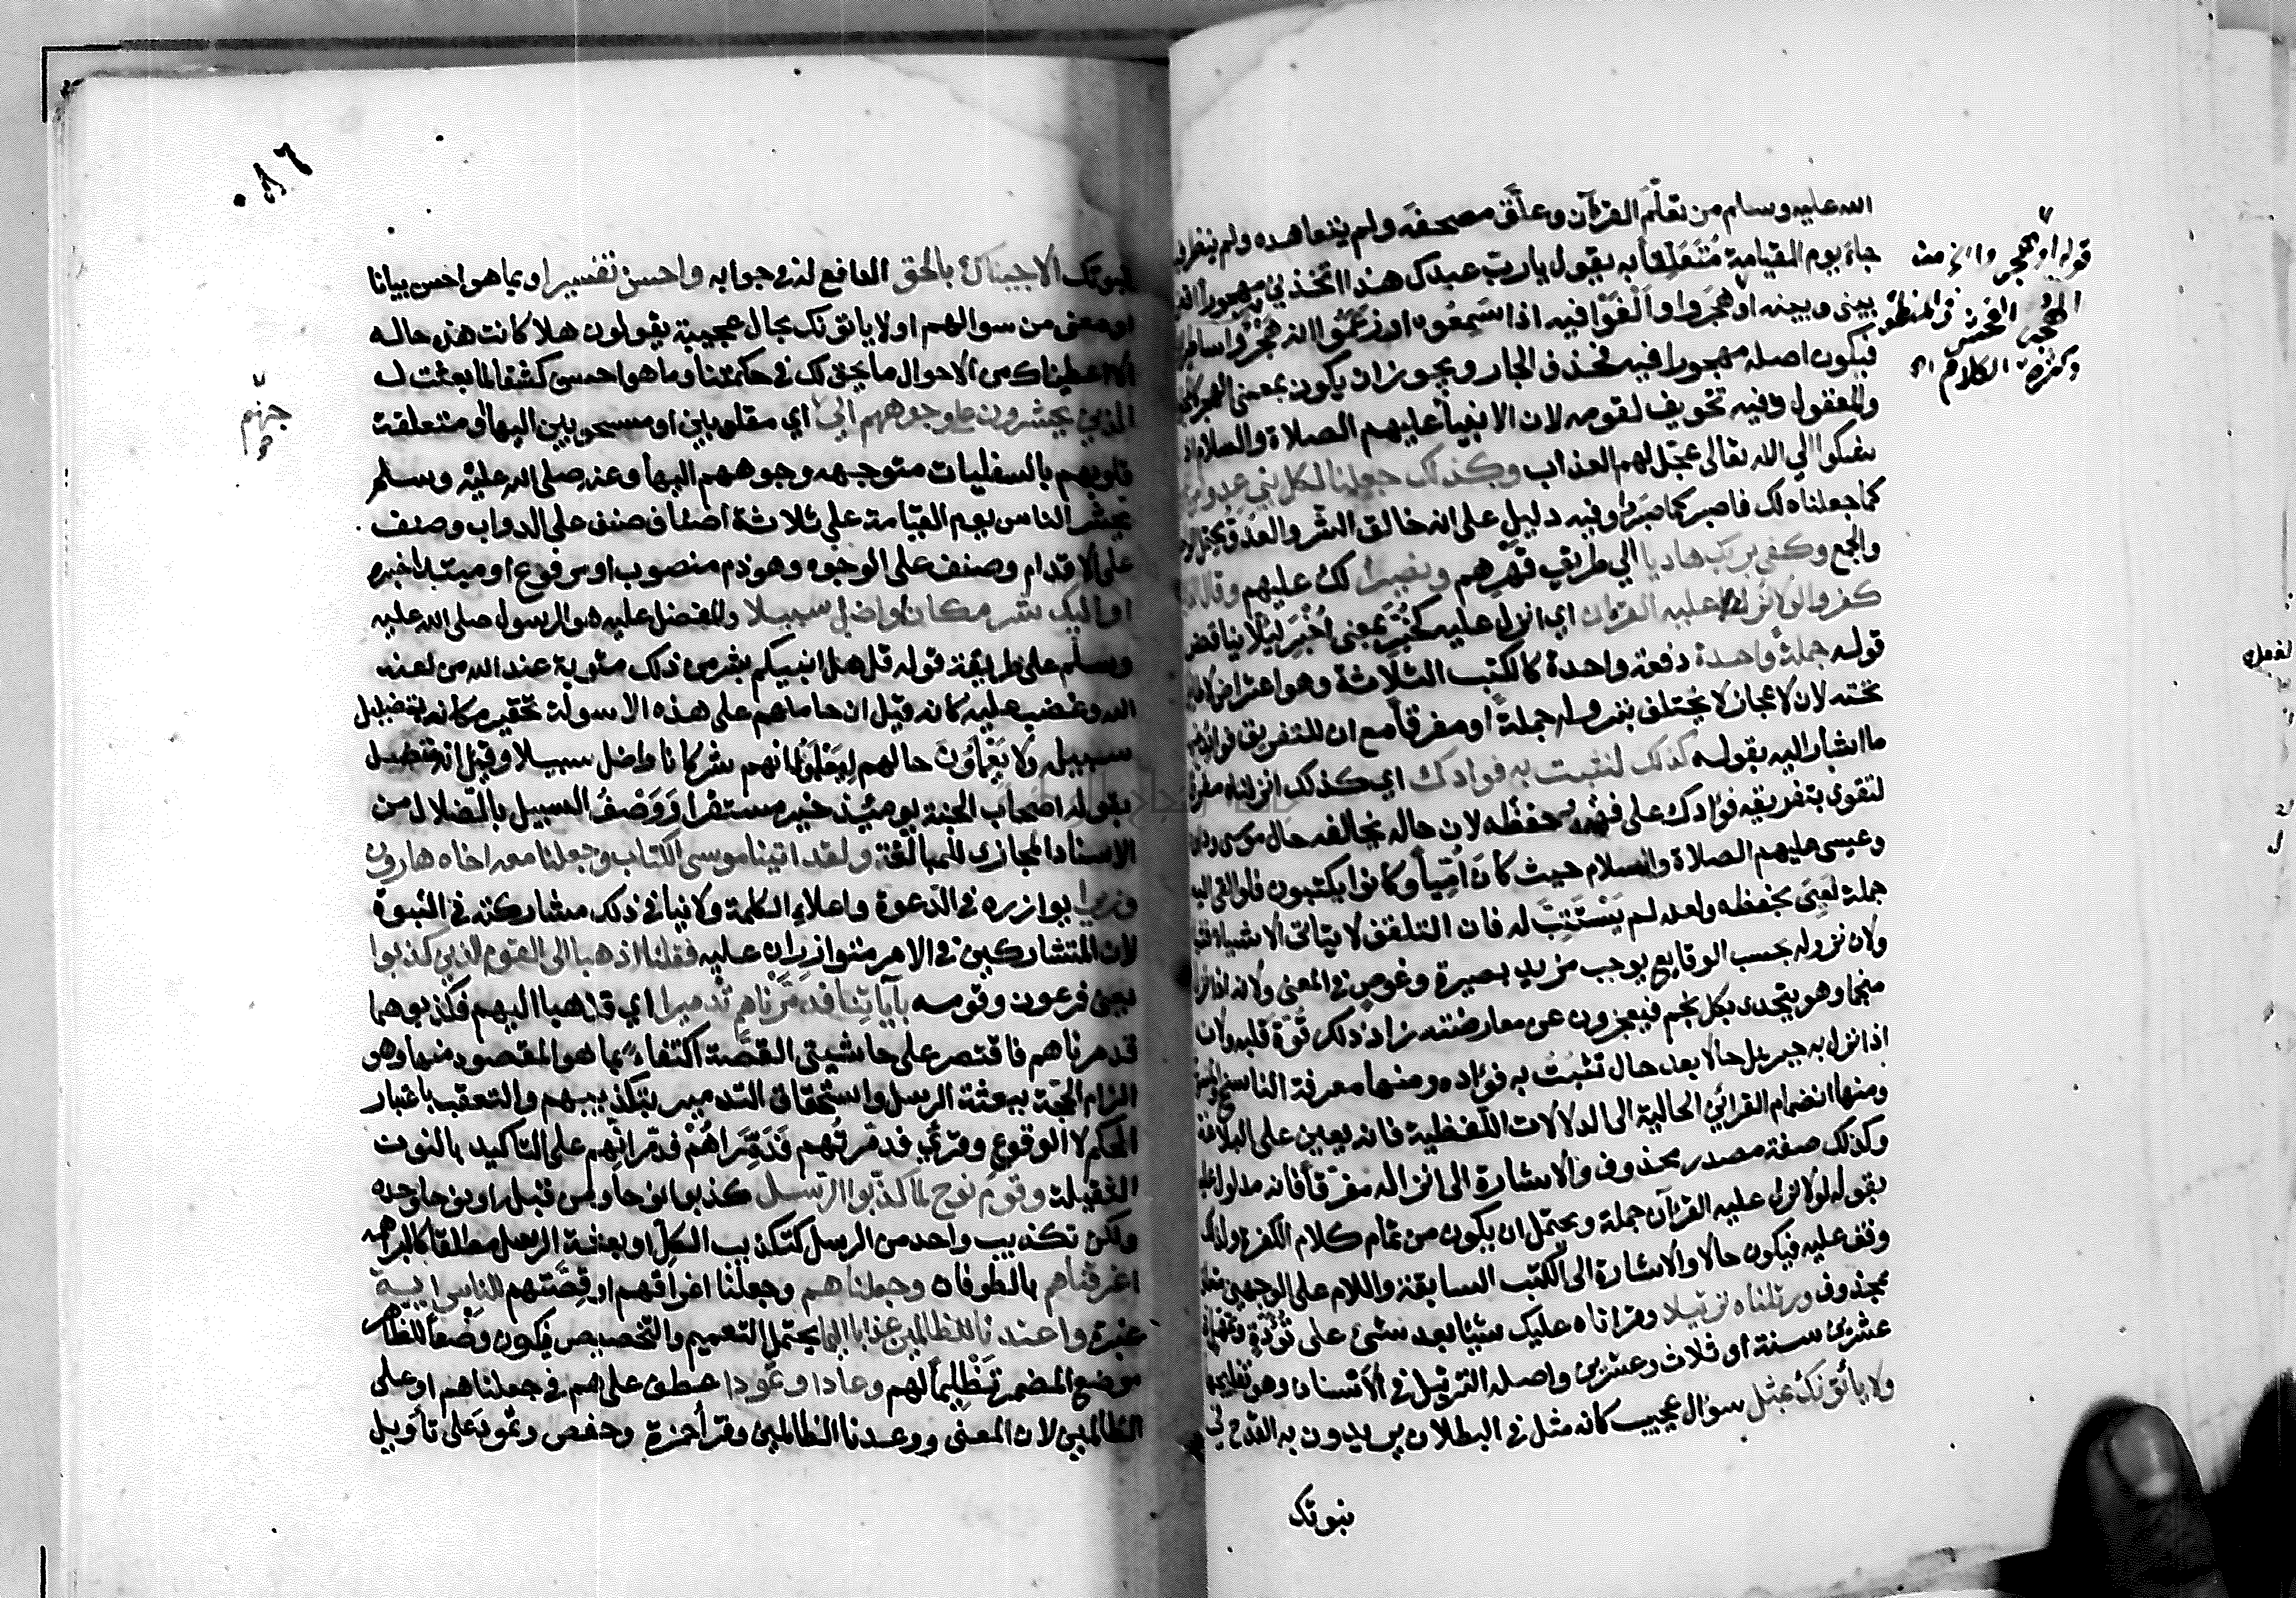 الله عليه وسلم من تعلّم القرآن وعلّق مصحفه ولم يتعاهده ولم ينظر فيه
جاء يوم القيامة مُتَعَلِّقًا به يقول يا ربّ عبدك هذا اتخذني مهجورا اقض
بيني وبينه او هَجَروا وأَلْغَوْا فيه اذا سَمِعُوه او زعمُوا انه هُجْرٌ واساطير
فيكون اصله مهجورا فيه فحذف الجار ويجوز ان يكون بمعنى الهجر كالمجلود
والمعقول وفيه تخويف لقومه لان الانبيا عليهم الصلاة والسلام اذا
شكوا الي الله تعالى عجّل لهم العذاب وكذلك جعلنا لكل نبي عدوا من
كما جعلناه لك فاصبر كما صَبَرُوا وفيه دليل على انه خالق الشّر والعدوّ يحتمل الواحد
والجمع وكفى بربك هاديا الي طريق قهرهم ونصيرا لك عليهم وقال الذين
كفروا لولا نُزّل عليه القرآن اي انزل عليه كخُبِّرَ بمعنى اُخْبِرَ لئلا يناقض
قوله جملةً واحدة دفعة واحدة كالكتب الثلاثة وهو اعتراض لا طايل
تحته لان الاعجاز لا يختلف بنزوله جملةً او مفرقا مع ان للتفريق فوايد منها
ما اشار اليه بقوله كذلك لنثبت به فوادك اي كذلك انزلناه مفرقا
لتقوى بتفريقه فؤادك على حفظه لان حاله يخالف حال موسى وداود
وعيسى عليهم الصلاة والسلام حيث كانَ اُمّيّا وكانوا يكتبون فلو القى اليه
جملة لَعَيِيَ بحفظه ولعله لم يَسْتَتِبَّ له فان التلقف لا يتاتى الا شيا فشيا
ولان نزوله بحسب الوقايع يوجب مزيد بصيرة وغوص في المعنى ولانه اذا نزل
منجما وهو يتحدى بكل نجم فيعجزون عن معارضته زاد ذلك قُوّة قلبه ولان
اذا نزل به جبريل حالا بعد حال تثبُتُ به فؤاده ومنها معرفة الناسخ والمنسوخ
ومنها انضمام القرائن الحالية الى الدلالات اللّفظية فانه يعين على البلاغة
وكذلك صفة مصدر محذوف والاشارة الى انزاله مفرّقا فانه مدلول عليه
بقوله لولا نزل عليه القرآن جملة ويحتمل ان يكون من تمام كلام الكفرة ولذلك
وقف عليه فيكون حالا والاشارة الى الكتب السابقة واللام على الوجهين متعلق
بمحذوف ورتلناه ترتيلا وقراناه عليك شيئا بعد شئ على تُؤَدَةٍ وتمهل في
عشرين سنة او ثلاث وعشرين واصله الترتيل في الاسنان وهو تفليجها
ولا يأتونك بمثل سؤال عجيب كانه مثل في البطلان يريدون به القدح في
نبوتك
قوله او هجروا الخ من
الهجر الفحش في المنطق
وكثرة الكلام
نبوتك الا جيناك بالحق الدافع له في جوابه واحسن تفسيرا وبما هو احسن بيانا
او معنى من سوالهم اولا ياتونك بحال عجيبة يقولون هلا كانت هذه حاله
الا اعطيناك من الاحوال ما يحق لك في حكمتنا وما هو احسن كشفا لما بعثت له
الذين يحشرون على وجوههم الي اي مقلوبين او مسحوبين اليها او متعلقة
قلوبهم بالسفليات متوجهه وجوههم اليها وعنه صلى الله عليه وسلم
يحشر الناس يوم القيامة على ثلاثة اصناف صنف على الدواب وصنف
على الاقدام وصنف على الوجوه وهو ذم منصوب او مرفوع او مبتدا خبره
اوليك شر مكانا واضل سبيلا والمفضل عليه هو الرسول صلى الله عليه
وسلم على طريقة قوله قل هل انبيكم بشر من ذلك مثوبة عند الله من لعنه
الله وغضب عليه كانه قيل ان حاملهم على هذه الاسولة تحقير مكانه بتضليل
سبيله ولا يَعْلَمُونَ حالهم ليعلموا انهم شر مكانا واضل سبيلا وقيل انه متصل
بقوله اصحاب الجنة يوميئذ خير مستقرا وَوَصْفُ السبيل بالضّلال من
الاسناد المجازي للمبالغة ولقد اتينا موسى الكتاب وجعلنا معه اخاه هارون
وزيرا يوازره في الدّعوة واعلاءِ الكلمة ولا ينافي ذلك مشاركته في النبوة
لان المتشاركين في الامر متوازران عليه فقلنا اذهبا الى القوم الذين كذبوا
يعني فرعون وقومه بآياتنا فدمّرناهم تدميرا اي فذهبا اليهم فكذبوهما
فدمرناهم فاقتصر على حاشيتى القصّة اكتفاءً بما هو المقصود منها وهو
الزام الحجّة ببعثة الرسل واستحقاق التدمير بتكذيبهم والتعقيب باعتبار
الحكم لا الوقوع وقرئ فدمرتُهم فَدَمِّرَاهُمْ فدمّرانّهم على التاكيد بالنون
الثقيلة وقوم نوح لما كذّبوا الرّسل كذبوا نوحا ومن قبله او نوحا وحده
ولكن تكذيب واحد من الرسل كتكذيب الكل او بعثة الرسل مطلقا كالبراهمه
اغرقناهم بالطوفان وجعلناهم وجعلنا اغراقهم او قِصّتهم للناس اية
عبرة واعتدنا للظالمين عذابا اليما يحتمل التعميم والتخصيص فيكون وَضْعاً للظاهر
موضع المضمر تَظْلِيماً لهم وعادا وثمودا عطف على هم في جعلناهم او على
الظالمين لان المعنى ووعدنا الظالمين وقرأ حمزة وحفص وثمود على تأويل
جهنم
٠٨٦